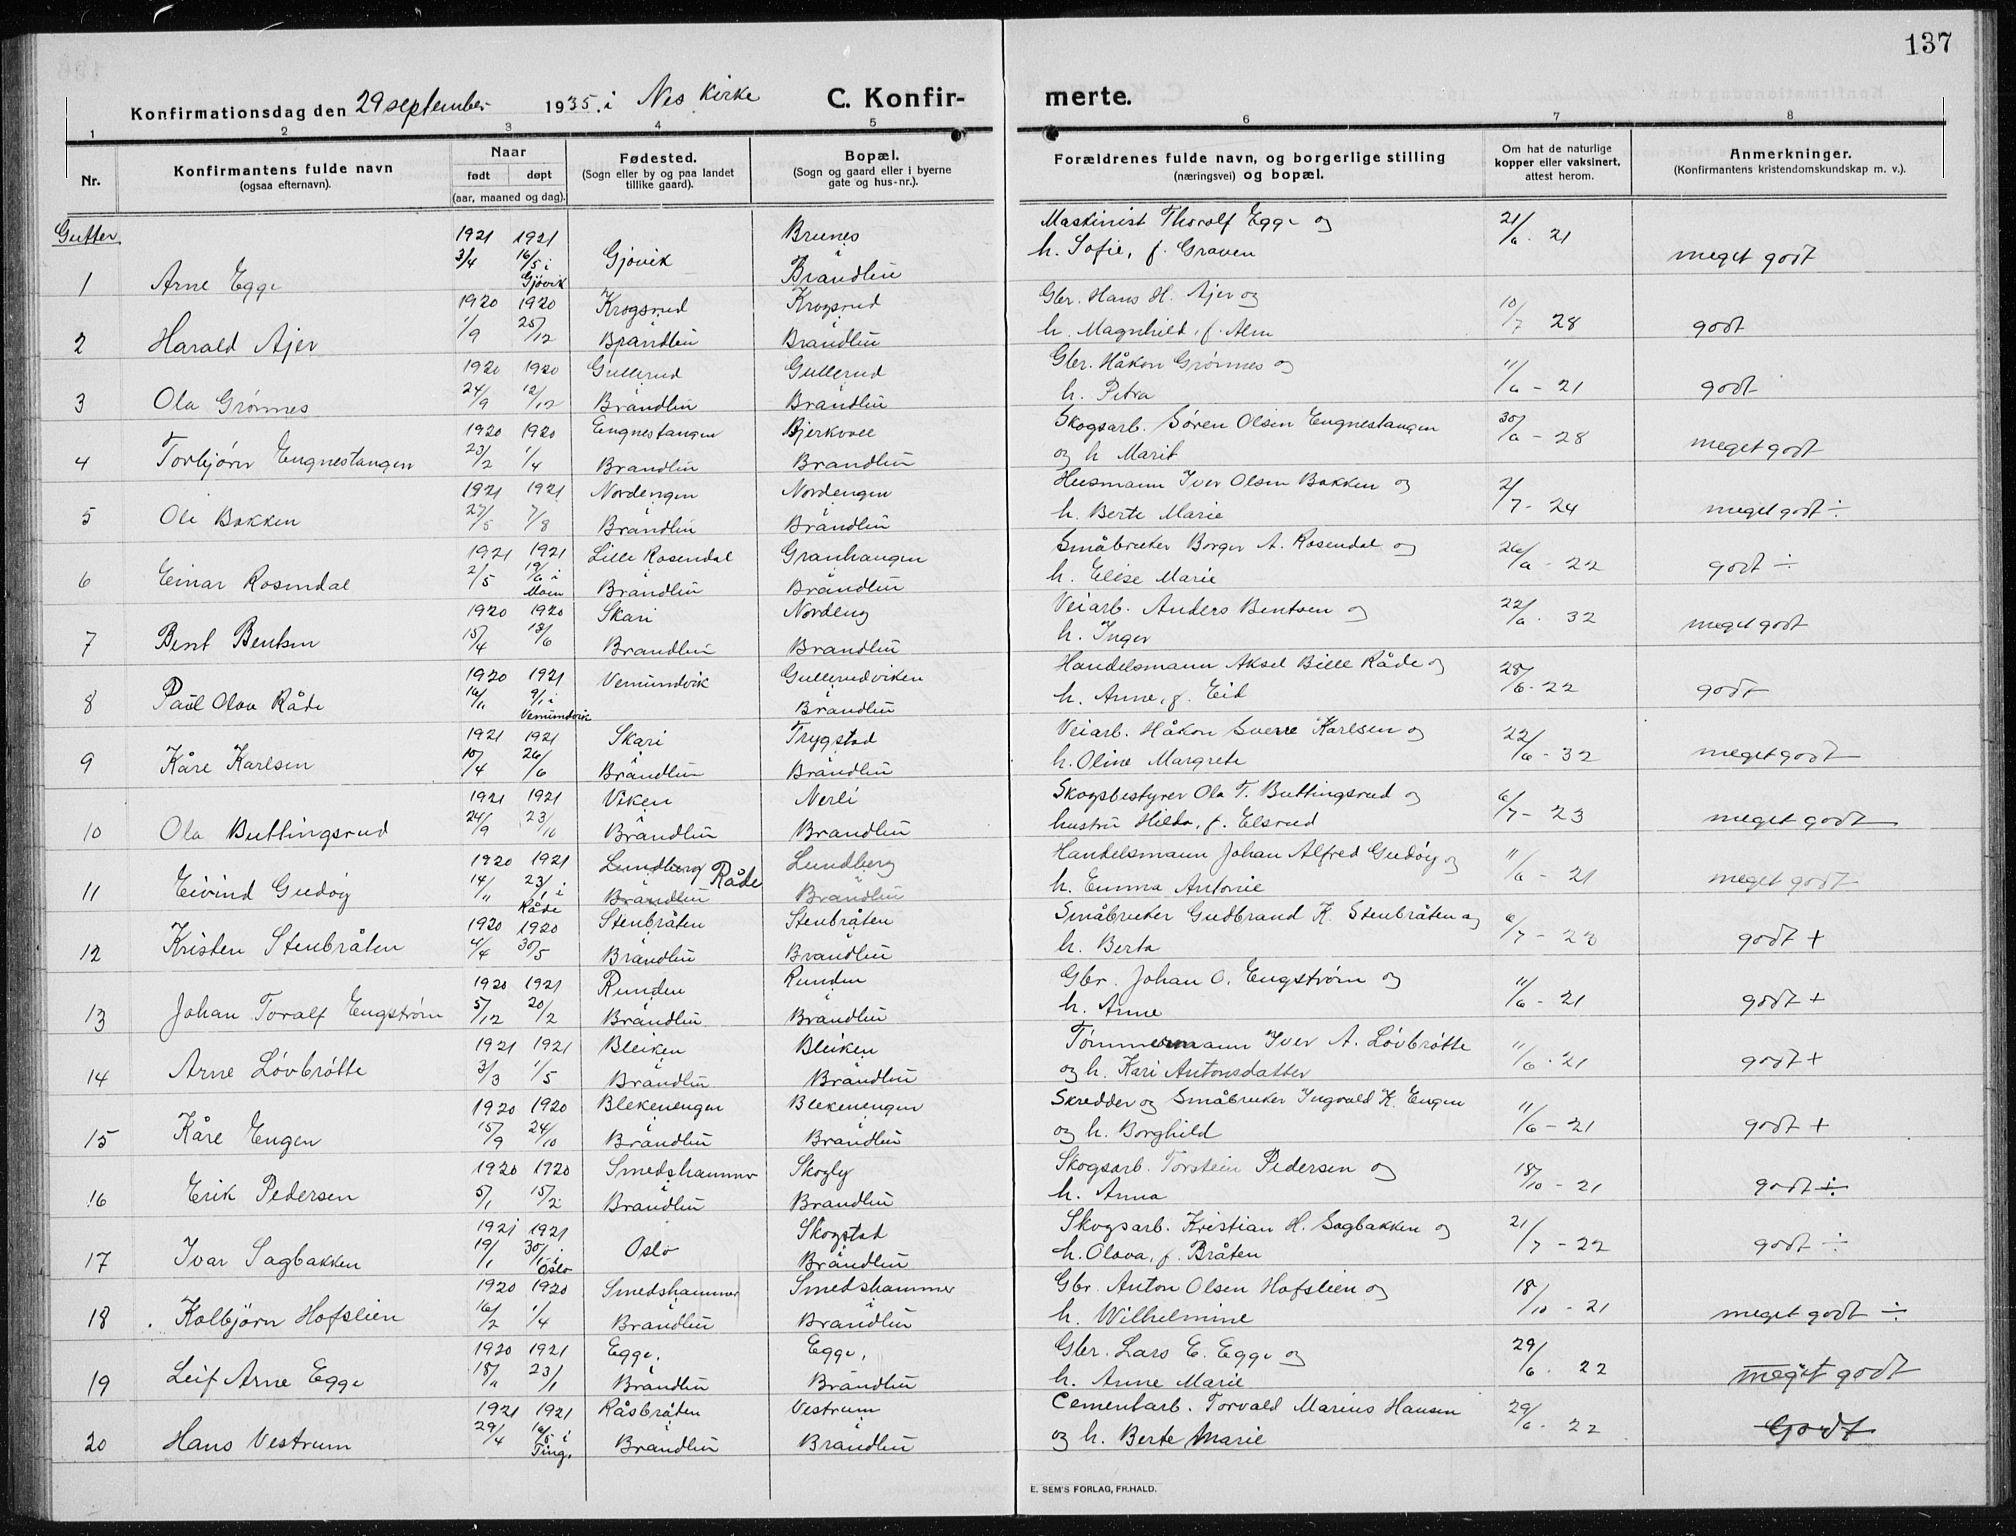 137
Konfirmationsdag den 29 september 1935. i Nes Kirke C. Konfir-merte.
1 2 3 4 5 6 7 8
Nr. Konfirmantens fulde navn (ogsaa efternavn). Naar født døpt (aar, maaned og dag). Fødested. (Sogn eller by og paa landet tillike gaard). Bopæl. (Sogn og gaard eller i byerne gate og hus-nr.). Forældrenes fulde navn, og borgerlige stilling (næringsvei) og bopæl. Om hat de naturlige kopper eller vaksinert, attest herom. Anmerkninger. (Konfirmantens kristendomskundskap m. v.).
Gutter
1 Arne Egge 1921 3/4 1921 16/5 i Gjøvik Gjøvik Brunes i Brandlien Maskinist Thoralf Egge og h. Sofie, f. Graven 21/6 - 21 meget godt
2 Harald Ajer 1920 1/9 1920 25/12 Krogsrud i Brandlien Krogsrud i Brandlien Gbr. Hans H. Ajer og h. Magnhild, f. Alm 10/7 28 godt
3 Ola Grønnes 1920 24/9 1920 12/12 Gullerud i Brandlien Gullerud i Brandlien Gbr. Håkon Grønnes og h. Petra 11/6 - 21 godt
4 Torbjørn Engnestangen 1920 23/2 1920 1/4 Engnestangen i Brandlien Bjerkovee Brandlien Skogsarb. Søren Olsen Engnestangen og h Marit 30/6 - 28 meget godt
5 Ole Bakken 1921 27/5 1921 7/8 Nordengen i Brandlien Nordengen i Brandlien Husmann Iver Olsen Bakken og h. Berte Marie 2/7 - 24 meget godt ÷
6 Einar Rosendal 1921 2/5 1921 19/6 i Moen Lille Rosendal i Brandlien Granhaugen i Brandlien Småbruker Borger A. Rosendal og h. Elise Marie 26/6 - 22 godt ÷
7 Bent Bentsen 1920 15/4 1920 13/6 Skari i Brandlien Nordeng Brandlien Veiarb. Anders Bentsen og h. Inger 22/6 - 32 meget godt
8 Paul Olav Råde 1920 16/11 1921 9/1 i Vemundvik Vemundvik Gullerudviken i Brandlien Handelsmann Aksel Bille Råde og h. Anne, f. Eid 28/6 - 22 godt
9 Kåre Karlsen 1921 10/4 1921 26/6 Skari i Brandlien Trygstad i Brandlien Veiarb. Håkon Sverre Karlsen og h. Oline Margrete 22/6 - 32 meget godt
10 Ola Buttingsrud 1921 24/9 1921 23/10 Viken i Brandlien Nerli i Brandlien Skogsbestyrer Ola T. Buttingsrud og hustru Hilda, f. Elsrud 6/7 - 23 meget godt
11 Eivind Gudøy 1920 14/11 1921 23/1 i Råde Lundberg i Brandlien Råde Lundberg i Brandlien Handelsmann Johan Alfred Gudøy og h. Emma Antonie 11/6 - 21 meget godt
12 Kristen Stenbråten 1920 4/4 1920 30/5 Stenbråten i Brandlien Stenbråten i Brandlien Småbruker Gudbrand K. Stenbråten og h. Berta 6/7 - 22 godt +
13 Johan Toralf Engstrøm 1920 5/12 1921 20/2 Runden i Brandlien Runden i Brandlien Gbr. Johan O. Engstrøm og h. Anne 11/6 - 21 godt +
14 Arne Løvbrøtte 1921 3/3 1921 1/5 Bleiken i Brandlien Bleiken i Brandlien Tømmermann Iver A. Løvbrøtte og h. Kari Antonsdatter 11/6 - 21 godt +
15 Kåre Engen 1920 15/9 1920 24/10 Blekenengen i Brandlien Blekenengen i Brandlien Skredder og Småbruker Ingvald K. Engen og h. Borghild 11/6 - 21 godt +
16 Erik Pedersen 1920 5/1 1920 15/2 Smedshammer i Brandlien Skogly i Brandlien Skogsarb. Torstein Pedersen og h. Anna 18/10 - 21 godt ÷
17 Ivar Sagbakken 1921 19/1 1921 30/1 i Oslo Oslo Skogstad i Brandlien Skogsarb. Kristian H. Sagbakken og h. Olava, f. Bråten 21/7 - 22 godt ÷
18 Kolbjørn Hofslien 1920 16/2 1920 1/4 Smedshammer i Brandlien Smedshammer i Brandlien Gbr. Anton Olsen Hofslien og h. Wilhelmine 18/10 - 21 meget godt ÷
19 Leif Arne Egge 1920 18/11 1921 23/1 Egge, i Brandlien Egge, i Brandlien Gbr. Lars E. Egge og h. Anne Marie 29/6 - 22 meget godt
20 Hans Vestrum 1921 29/4 1921 16/5 i Ting. Råsbråten i Brandlien Vestrum i Brandlien Cementarb. Torvald Marius Hansen og h. Berte Marie 29/6 - 22 Godt
E. SEM'S FORLAG, FR.HALD.